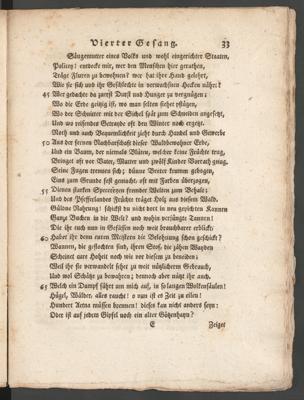 Vierter Gesang. 33
Säugemutter eines Volks und wohl eingerichter Staaten,
Policey! entdecke mir, wer den Menschen hier gerathen,
Träge Fluren zu bewohnen? wer hat ihre Hand gelehrt,
Wie sie sich und ihr Geschlechte in verwachsnen Hecken nährt?
45 Wer gedachte da zuerst Durst und Hunger zu vergnügen;
Wo die Erde geitzig ist, wo man selten siehet pflügen,
Wo der Schnitter mit der Sichel spät zum Schneiden angesetzt,
Und wo reifender Getrayde oft den Winter noch ergetzt.
Noth und auch Bequemlichkeit zieht durch Handel und Gewerbe
50 Aus der fernen Nachbarschaft dieser Waldbewohner Erbe,
Und ein Baum, der niemals Blüten, welcher keine Früchte trug,
Bringet oft vor Vater, Mutter und zwölf Kinder Vorrath gnug.
Seine Fugen trennen sich; dünne Breter krumm gebogen,
Eins zum Grunde fest gemacht, oft mit Farben überzogen,
55 Dienen starken Specereyen fremder Welten zum Behalt;
Und des Pfefferlandes Früchte trägt Holz aus diesem Wald.
Güldne Nahrung! schickst du nicht dort in neu gezierten Kannen
Ganze Buchen in die Welt? und wohin verjüngte Tannen!
Die ihr euch nun in Gefässen noch weit brauchbarer erblickt;
60 Habet ihr dem euren Meistern die Belohnung schon geschickt?
Wannen, die geflochten sind, ihren Stof, die zähen Wayden
Scheinet eure Hoheit noch wie vor diesem zu beneiden;
Weil ihr sie verwandelt seht zu weit nützlicherm Gebrauch,
Und wo Schätze zu bewahren; dennoch aber nützt ihr auch.
65 Welch ein Dampf fährt um mich auf, in so langen Wolkensäulen!
Hügel, Wälder, alles raucht! o nun ist es Zeit zu eilen!
Hundert Aetna müssen brennen! dieses kan nicht anders seyn:
Oder ist auf jedem Gipfel noch ein alter Götzenhayn?
E Zeiget